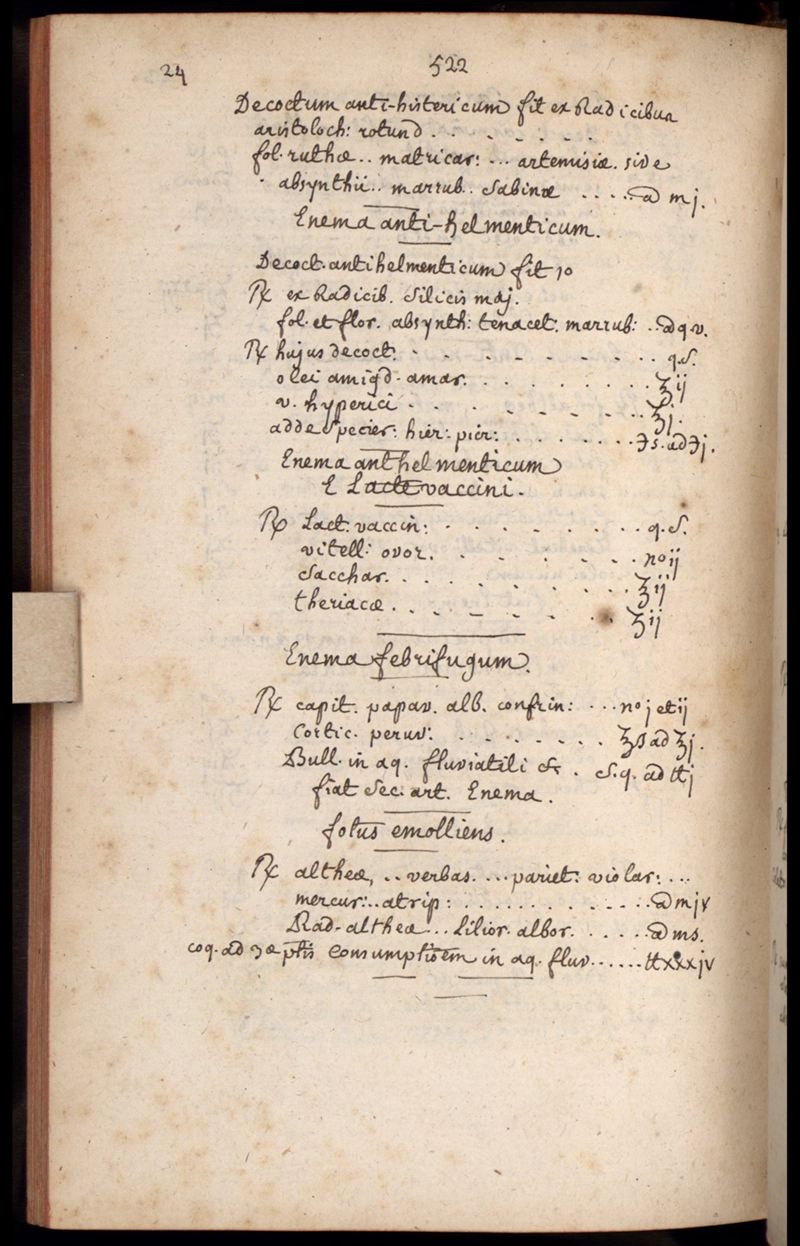 24 522
Decoctum anti-histericum fit ex Radicibus
aristoloch: rotund . . . . . . .
fol. ruthæ .. matricar: ... artemisiæ. sive
absynthii .. marrub .. Sabinæ . . . . . ā mj.
Enema anti-helmenticum.
Decoct. antihelmenticum fit 10
℞ ex Radicib. Silicis maj.
fol. et flor. absynth: tenacet. marrub: . . ā q v.
℞ hujus decoct. . . . . . . . . . q.S.
olei amigd. amar. . . . . . . . . ʒij
v. hyperici . . . . . . . . . ʒj.
adde Specier: hier: pier: . . . . . . . ℈s. ad ℈j.
Enema anthelmenticum
E Lacte vaccini.
℞ Lact. vaccin: . . . . . . . . . q.S.
vitell: ovor. . . . . . . . nº ij
Sacchar. . . . . . . . . ʒij
theriacæ . . . . . . . . ʒij
Enema febrifugum.
℞ capit. papav. alb. confrin: . . . nº j et ij
Cortic. peruv: . . . . . . . . ʒß ad ʒj.
Bull. in aq. fluviatili &c . S.q. ad ℔j
fiat Sec. art. Enema.
fotus emolliens.
℞ altheæ, .. verbas. ... pariet: violar: ...
mercur: .. atrip: . . . . . . . . . . . . ā mjv
Rad. altheæ ... Lilior. albor. . . . . . ā ms.
coq. ad 3æ ptis Consumptionem in aq. fluv. . . . . . ℔xxxjv